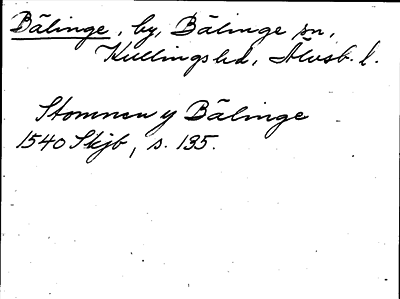 Bälinge, by, Bälinge sn,
Kullings hd, Älvsb. l.
Stomnen y Bälinge
1540 Skjb, s. 135.